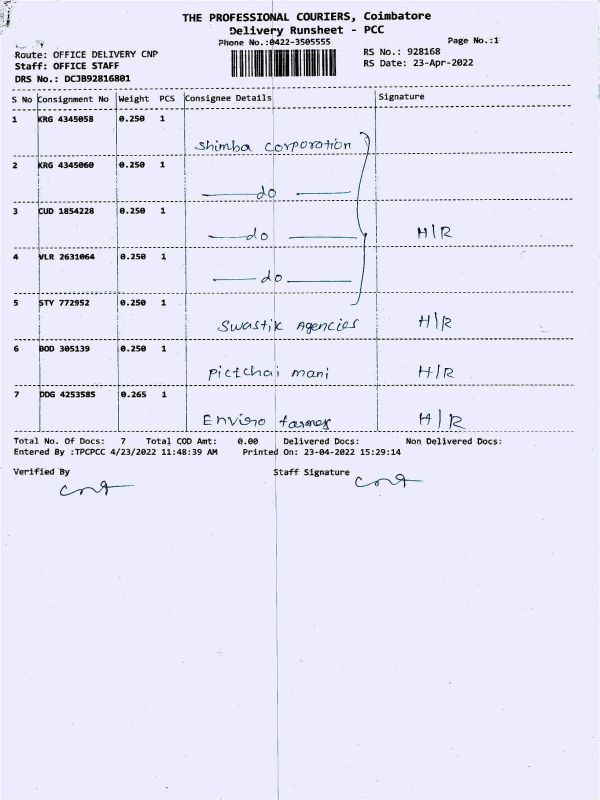 THE PROFESSIONAL COURIERS, Coimbatore
Delivery Runsheet - PCC
Phone No.:0422-3505555 Page No.:1
Route: OFFICE DELIVERY CNP RS No.: 928168
Staff: OFFICE STAFF RS Date: 23-Apr-2022
DRS No.: DCJB92816801
S No Consignment No Weight PCS Consignee Details Signature
1 KRG 4345058 0.250 1
Shimba corporation
2 KRG 4345060 0.250 1
do
3 CUD 1854228 0.250 1
do H/R
4 VLR 2631064 0.250 1
do
5 STY 772952 0.250 1
Swastik Agencies H/R
6 BOD 305139 0.250 1
Pictchai mani H/R
7 DDG 4253585 0.265 1
Enviro farmer H/R
Total No. Of Docs: 7 Total COD Amt: 0.00 Delivered Docs: Non Delivered Docs:
Entered By :TPCPCC 4/23/2022 11:48:39 AM Printed On: 23-04-2022 15:29:14
Verified By Staff Signature